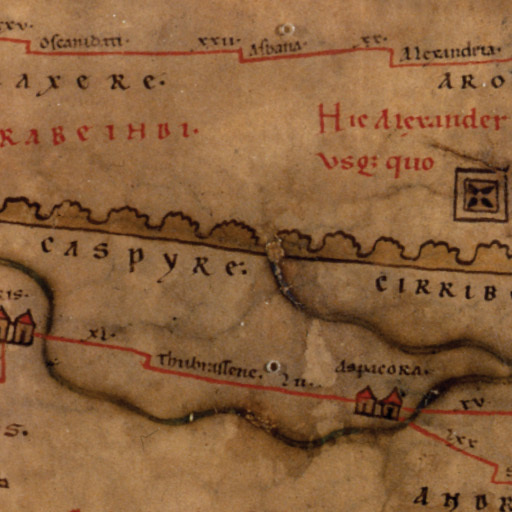 xxv.
Oscanidati. xxii. Asbana xx. Alexandria.
AXERE. ARO
RABEINDI. Hic Alexander
Usq: quo
CASPYRE. CIRRIBE
xis.
xl.
Thubrassene. Aspacora.
xv
lxx
S.